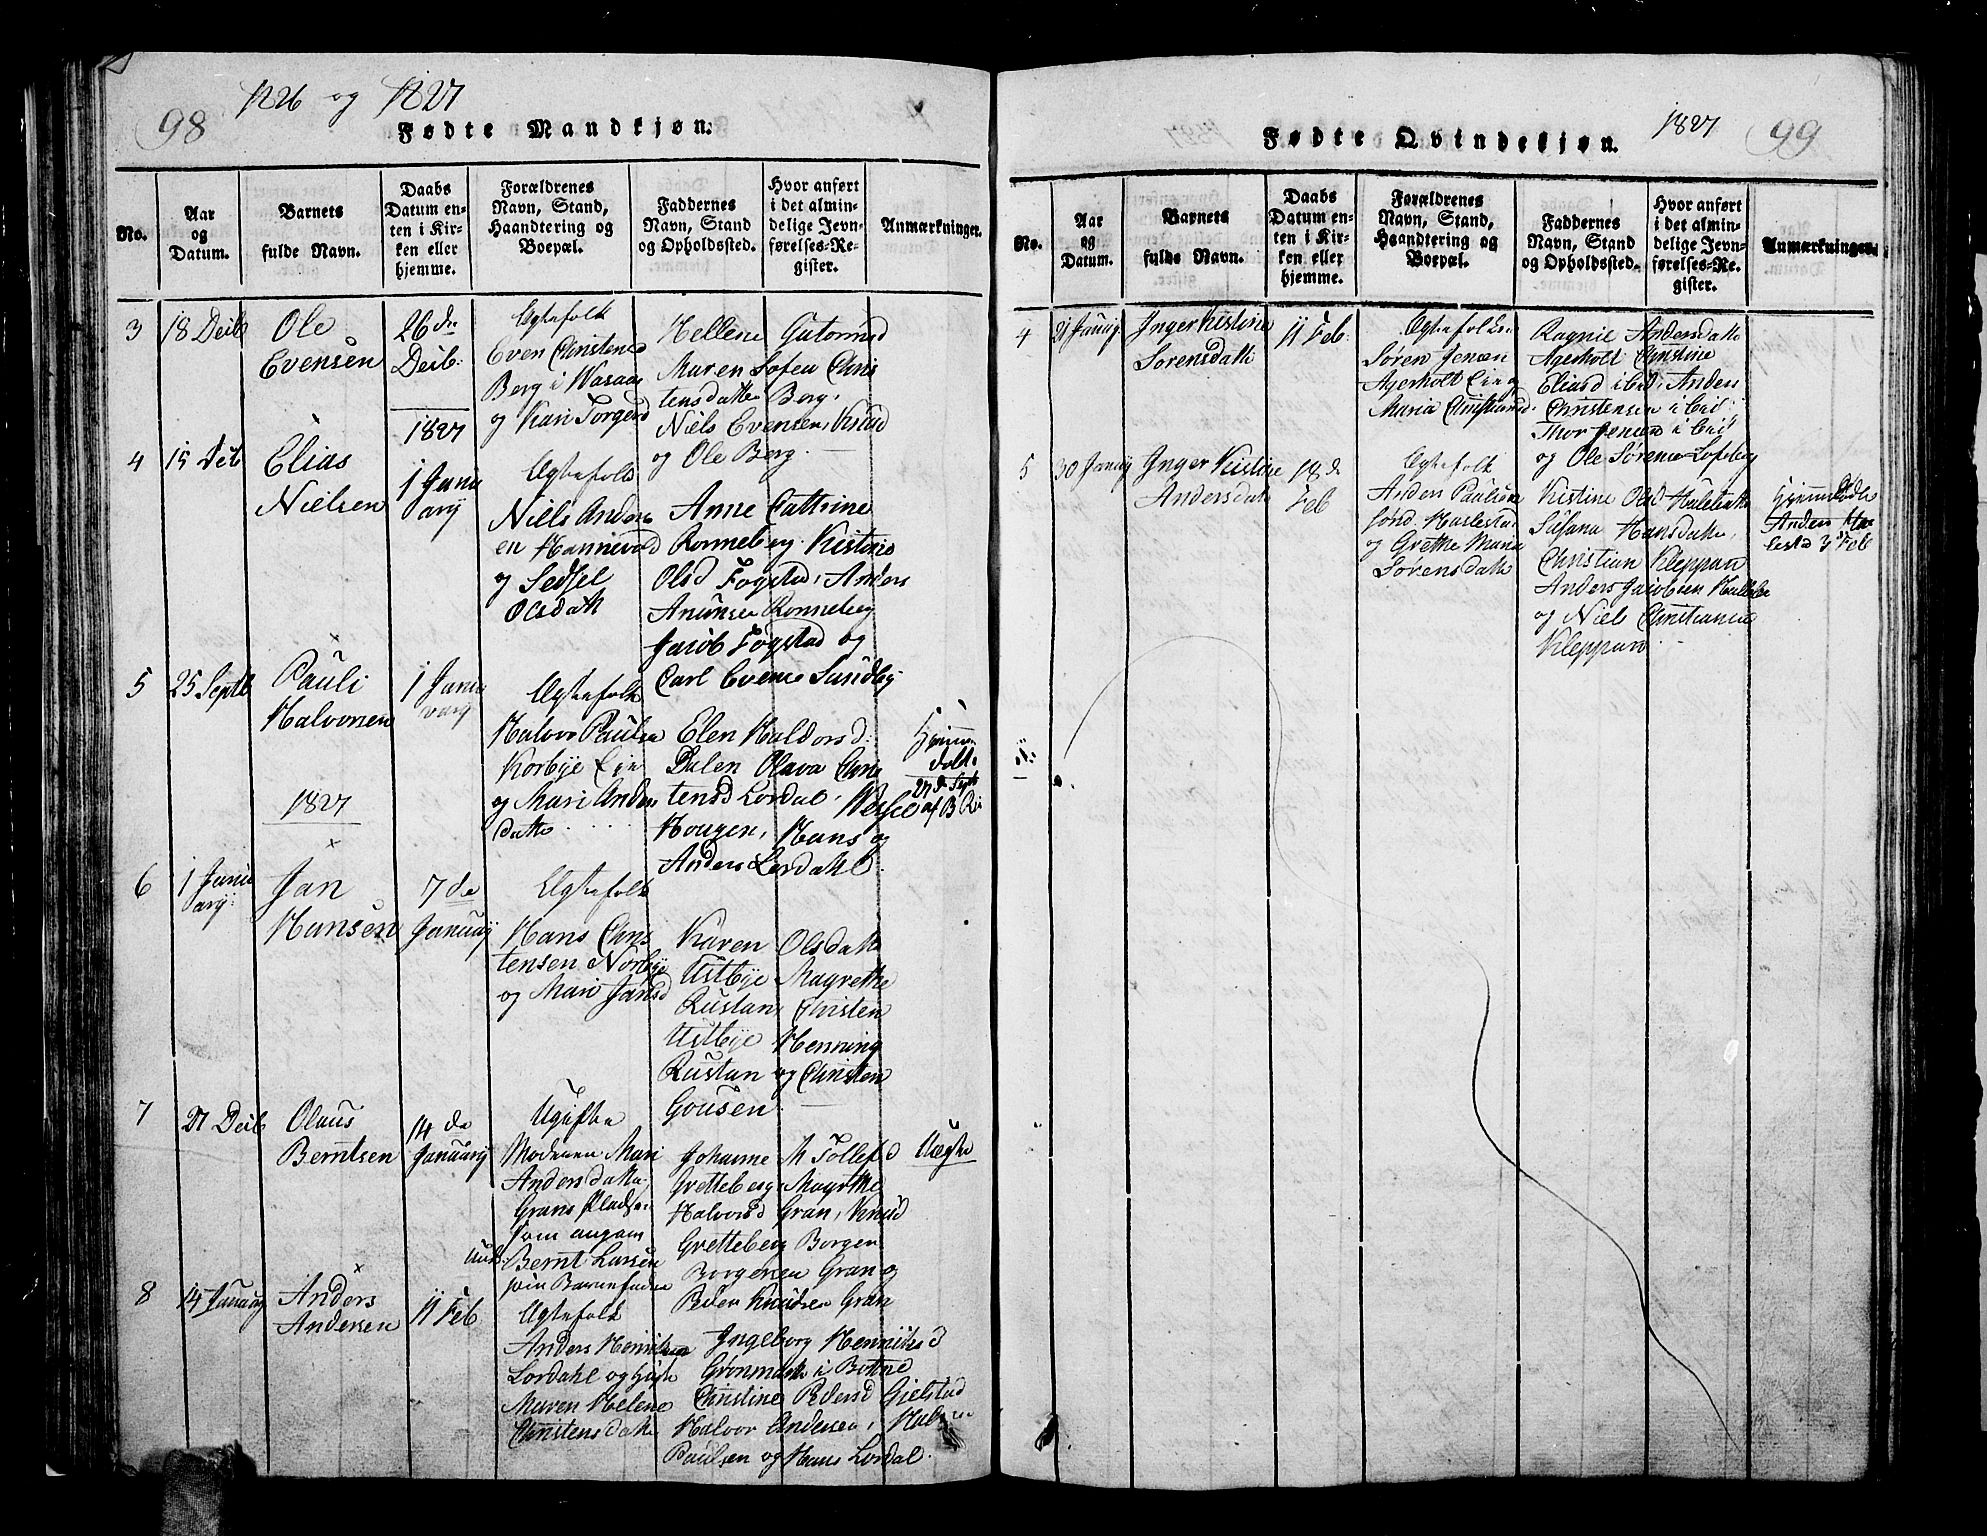 98
1826 og 1827
Fødte Mandkjøn.
No.
Aar
og
Datum.
Barnets
fulde Navn.
Daabs
Datum en-
ten i Kir-
ken eller
hjemme.
Forældrenes
Navn, Stand,
Haandtering og
Boepæl.
Faddernes
Navn, Stand
og Opholdssted.
Hvor anført
i det almin-
delige Jevn-
førelses-Re-
gister.
Anmærkninger.
3
18 Decb
Ole
Evensen
26 de
Decb:
Egtefolk
Even Christens
Berg i Wasaas
og Kari Torgersd
Hellene Gutormsd
Maren Sofea Chris
tensdatte Berg,
Niels Evensen, Knud
og Ole Berg.
1827
4
15 Decb
Elias
Nielsen
1 Janu
ary
Egtefolk
Niels Anders
en Hannevold
og Sedsel
Olsdatt
Anne Cattrine
Ronneberg. Kistine
Olsd Fogstad, Anders
Anunsen Ronneberg
Jacob Fogstad og
Carl Evens Sundby
5
25 Septb
Pauli
Halvorsen
1 Janu
vary
Egtefolk
Halvor Paulsen
Korbye Eie
og Mari Anders
datte
Elen Haldorsd:
Dalen Olava Chris
tensd Lordal,
Hougen, Hans og
Anders Lordahl.
Hjemme
døbt
27 de Septb
af B
1827
6
1 Janu
ary:
Jan
Hansen
7 de
January
Egtefolk
Hans Chris
tensen Norbye
og Mari Jansd
Karen Olsdatte
Ustbye Magrethe
Rustan, Christen
Ustbye Henning
Rustan og Christen
Gousen
7
27 Decb
Olaus
Berntsen
14 de
January
Ugifte
Moderen Mari
Andersdatte
Grans Pladse
som angam
Bernt Larsen
som Barnefader
Johanne M Tollefsd
Gretteberg Magrethe
Halvorsd Gran, Knud
Gretteberg Borgen
Borgersen Gran og
Peder Knudsen Gran
Uægte
8
14 January
Anders
Andersen
11 Feb
Egtefolk
Anders Henriksen
Lordahl og
Maren Helene
Christensdatte
Ingeborg Henriksd
Gronmark i Botne
Christine Pedersd Gjelstad
Halvor Andersen,
Paulsen og Hans Lordal.
Fødte Qvindekjøn.
1827
99
No.
Aar
og
Datum.
Barnets
fulde Navn.
Daabs
Datum en-
ten i Kir-
ken eller
hjemme.
Forældrenes
Navn, Stand,
Haandtering og
Boepæl.
Faddernes
Navn, Stand
og Opholdssted.
Hvor anført
i det almin-
delige Jevn-
førelses-Re-
gister.
Anmærkninger.
4
21 January
Inger Kistine
Sorensdatte
11 Feb:
Egtefolk
Søren Jensen
Agerholt Eie og
Maria Christiansd.
Ragnil Andersdatte
Agerholt Christine
Eliasd ibid, Anders
Christensen ibid,
Thor Jensen ibid
og Ole Sørense Lofsberg
5
30 January
Inger Kistine
Andersdatte
18 de
Feb
Egtefolk
Anders Paulsen
Haslestad
og Grethe Maria
Sorensdatte
Kistine Olsd
Susana Hansdatte,
Christian Kleppan
Anders Jacobsen
og Niels Christiansen
Kleppan.
Hjemmedøbt
Anders Ha
lestad 3 Feb